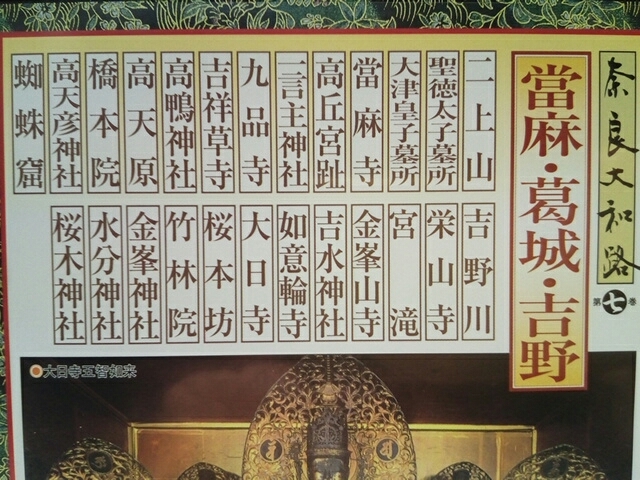 奈良大和路
第七巻
當麻・葛城・吉野
二上山
聖徳太子墓所
大津皇子墓所
當麻寺
高丘宮趾
一言主神社
九品寺
吉祥草寺
高鴨神社
高天原
橋本院
高天彦神社
蜘蛛窟
吉野川
栄山寺
宮滝
金峯山寺
吉水神社
如意輪寺
大日寺
桜本坊
竹林院
金峯神社
水分神社
桜木神社
大日寺五智如来